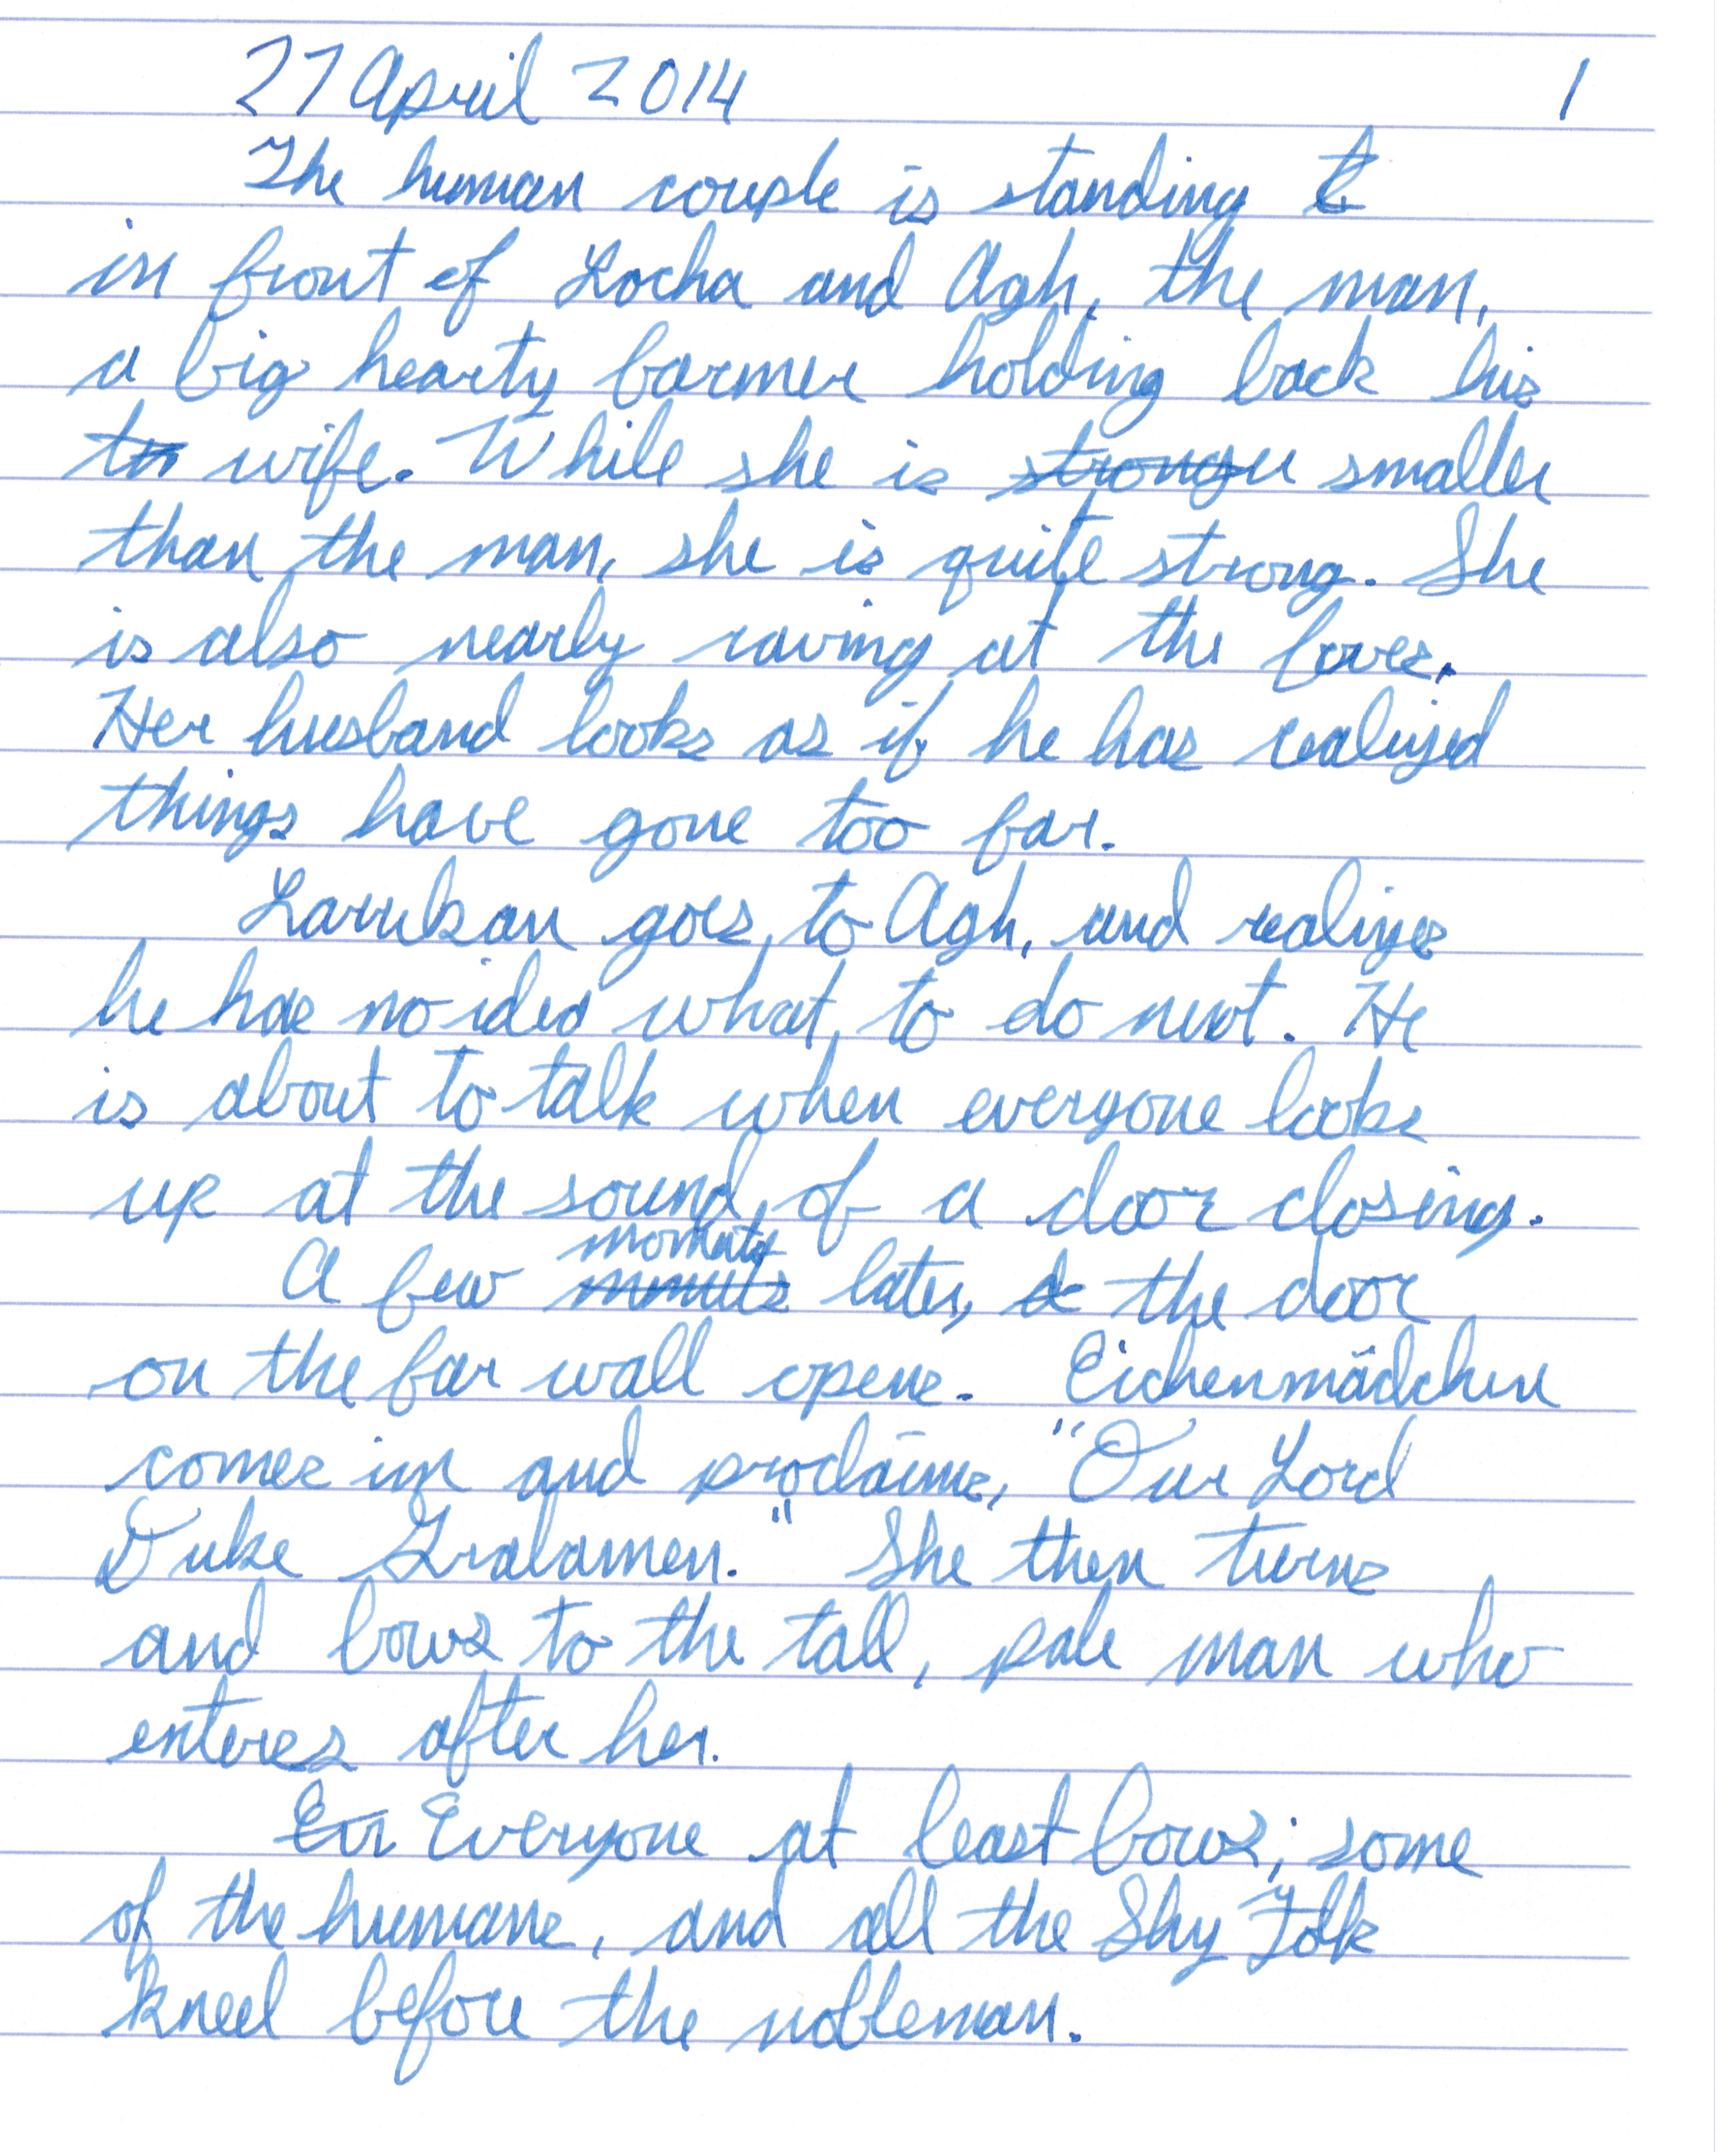 27 April 2014 1
The human couple is standing t
in front of Locha and Agh, the man,
a big hearty farmer holding back his
tn wife. While she is stronger smaller
than the man, she is quite strong. She
is also nearly raving at the foxes.
Her husband looks as if he has realized
things have gone too far.
Larukan goes to Agh, and realizes
he has no idea what to do next. He
is about to talk when everyone looks
up at the sound of a door closing.
moments
A few minutes later, the door
on the far wall opens. Eichenmädchen
comes in and proclaims, "Our Lord
Duke Gralamen." She then turns
and bows to the tall, pale man who
enteres after her.
Everyone at least bows; some
of the humans, and all the Shy Folk
kneel before the nobleman.